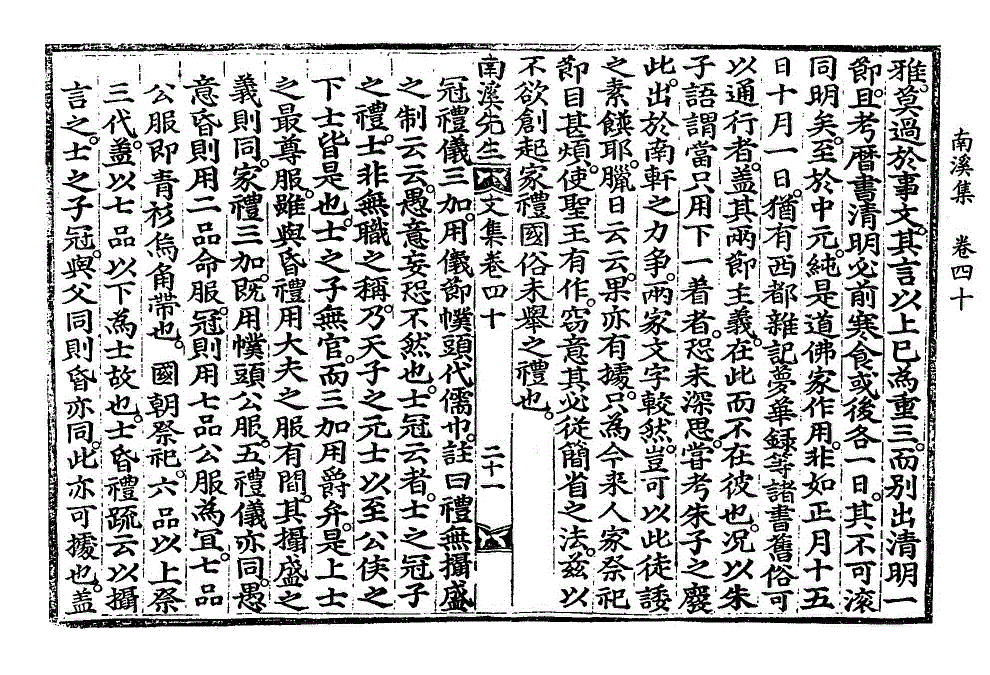 南溪集　卷四十
雅莫過於事文其言以上巳為重三而別出清明一
節且考曆書清明必前寒食或後各一日其不可滾
同明矣至於中元純是道佛家作用非如正月十五
日十月一日猶有西都雜記夢華錄等諸書舊俗可
以通行者蓋其兩節主義在此而不在彼也况以朱
子語謂當只用下一着者恐未深思嘗考朱子之廢
此出於南軒之力爭兩家文字較然豈可以此徒諉
之素饌耶臘日云云果亦有據只為今來人家祭祀
節目甚煩使聖王有作窃意其必從簡省之法茲以
不欲創起家禮國俗未舉之禮也
南溪先生文集卷四十　二十一
冠禮儀三加用儀節幞頭代儒巾註曰禮無攝盛
之制云云愚意妄恐不然也士冠云者士之冠子
之禮士非無職之稱乃天子之元士以至公侯之
下士皆是也士之子無官而三加用爵弁是上士
之最尊服雖與昏禮用大夫之服有間其攝盛之
義則同家禮三加既用幞頭公服五禮儀亦同愚
意昏則用二品命服冠則用七品公服為宜七品
公服即青衫烏角帶也國朝祭祀六品以上祭
三代蓋以七品以下為士故也士昏禮疏云以攝
言之士之子冠與父同則昏亦同此亦可據也蓋